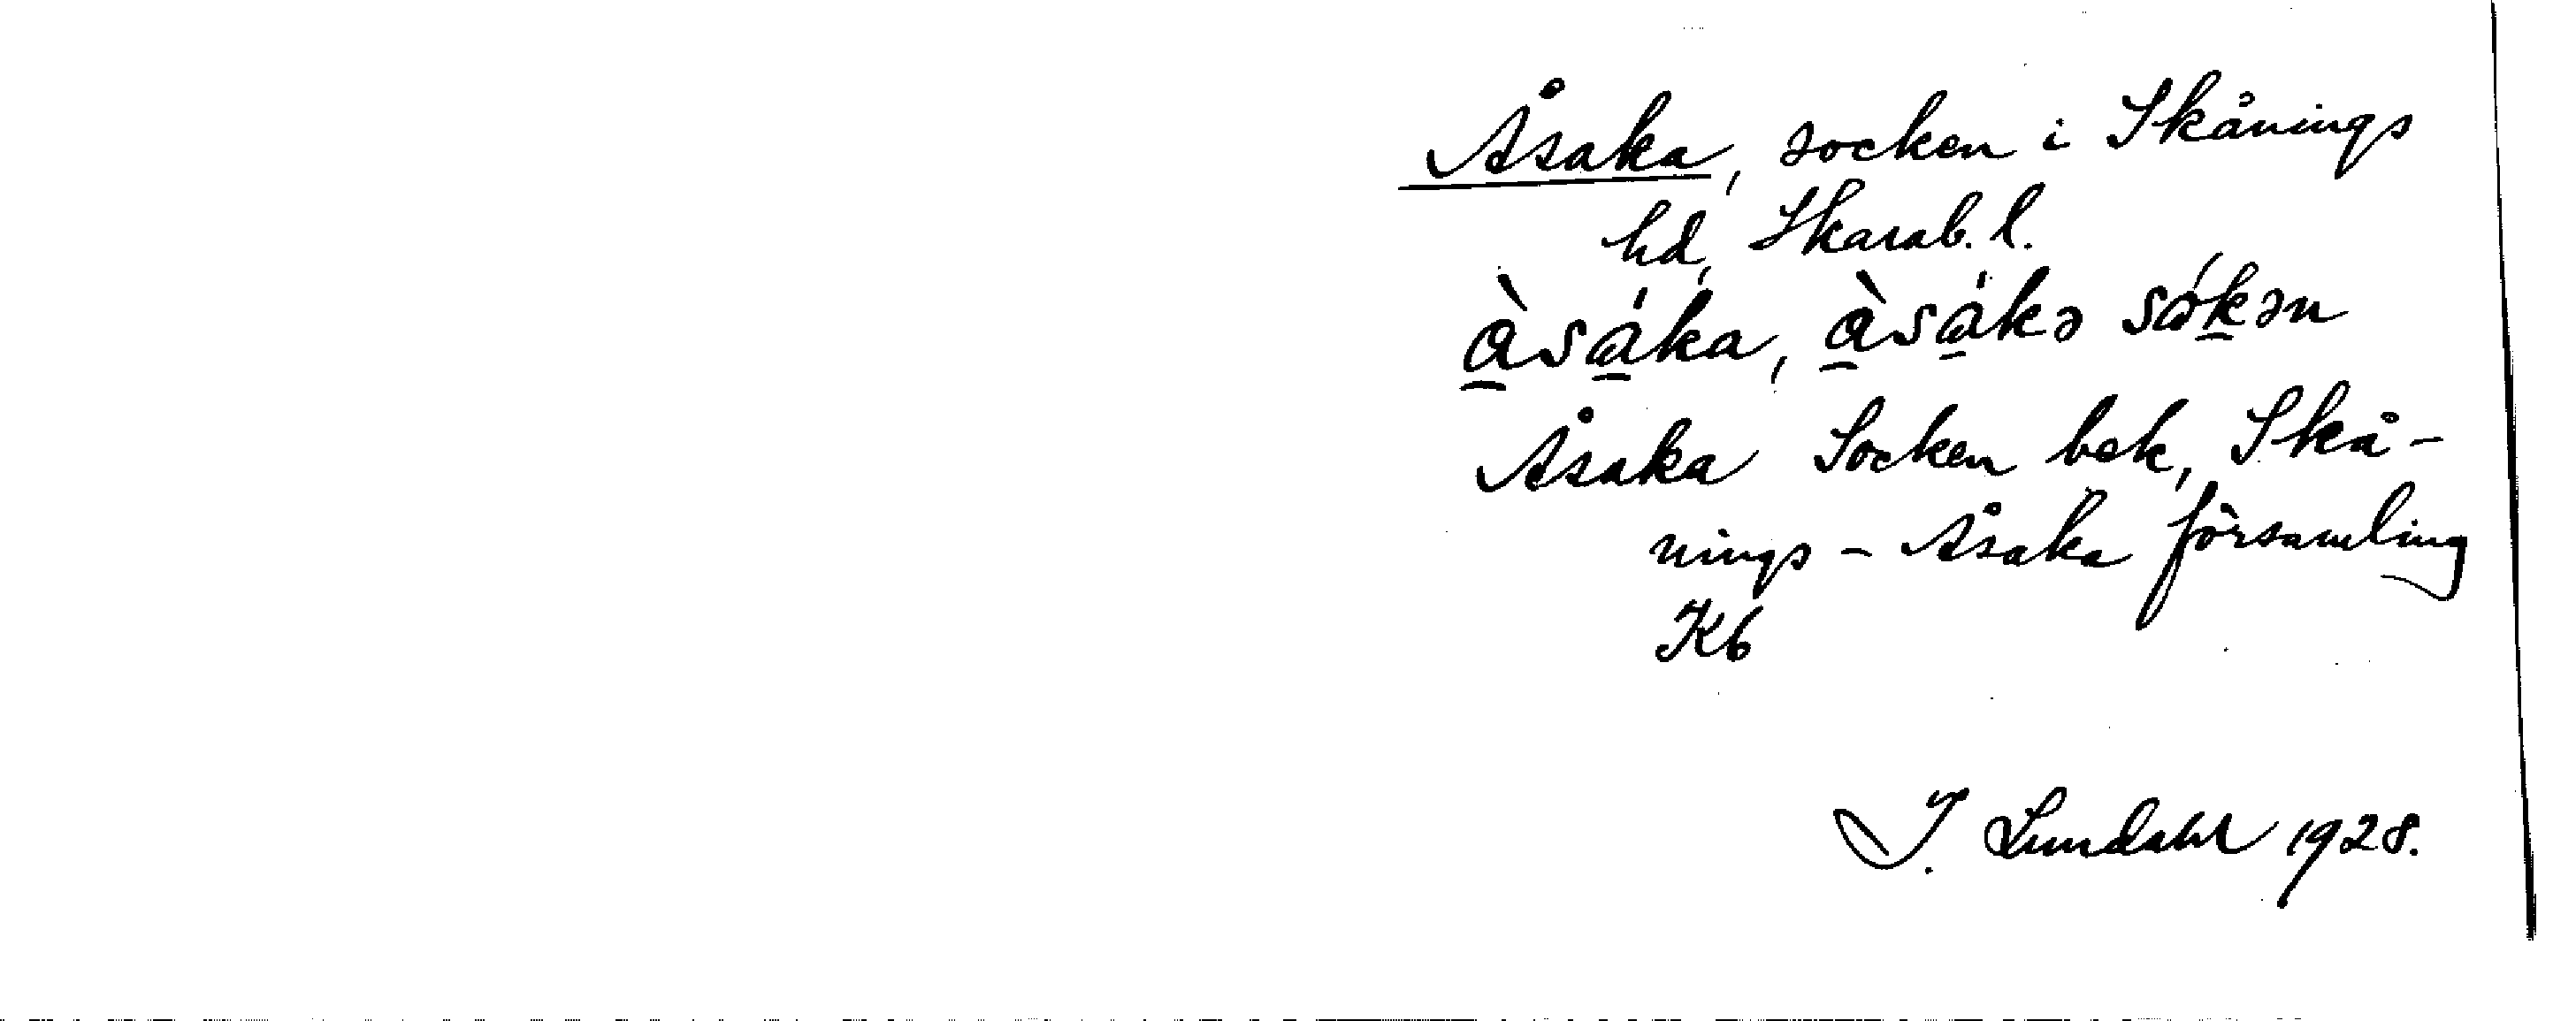 Åsaka, socken i Skånings
hd, Skarab. l.
à̱sá̱ka, à̱sá̱kə sóḵən
Åsaka Socken bek, Skå-
nings - Åsaka församling
Kb
I. Lundahl 1928.